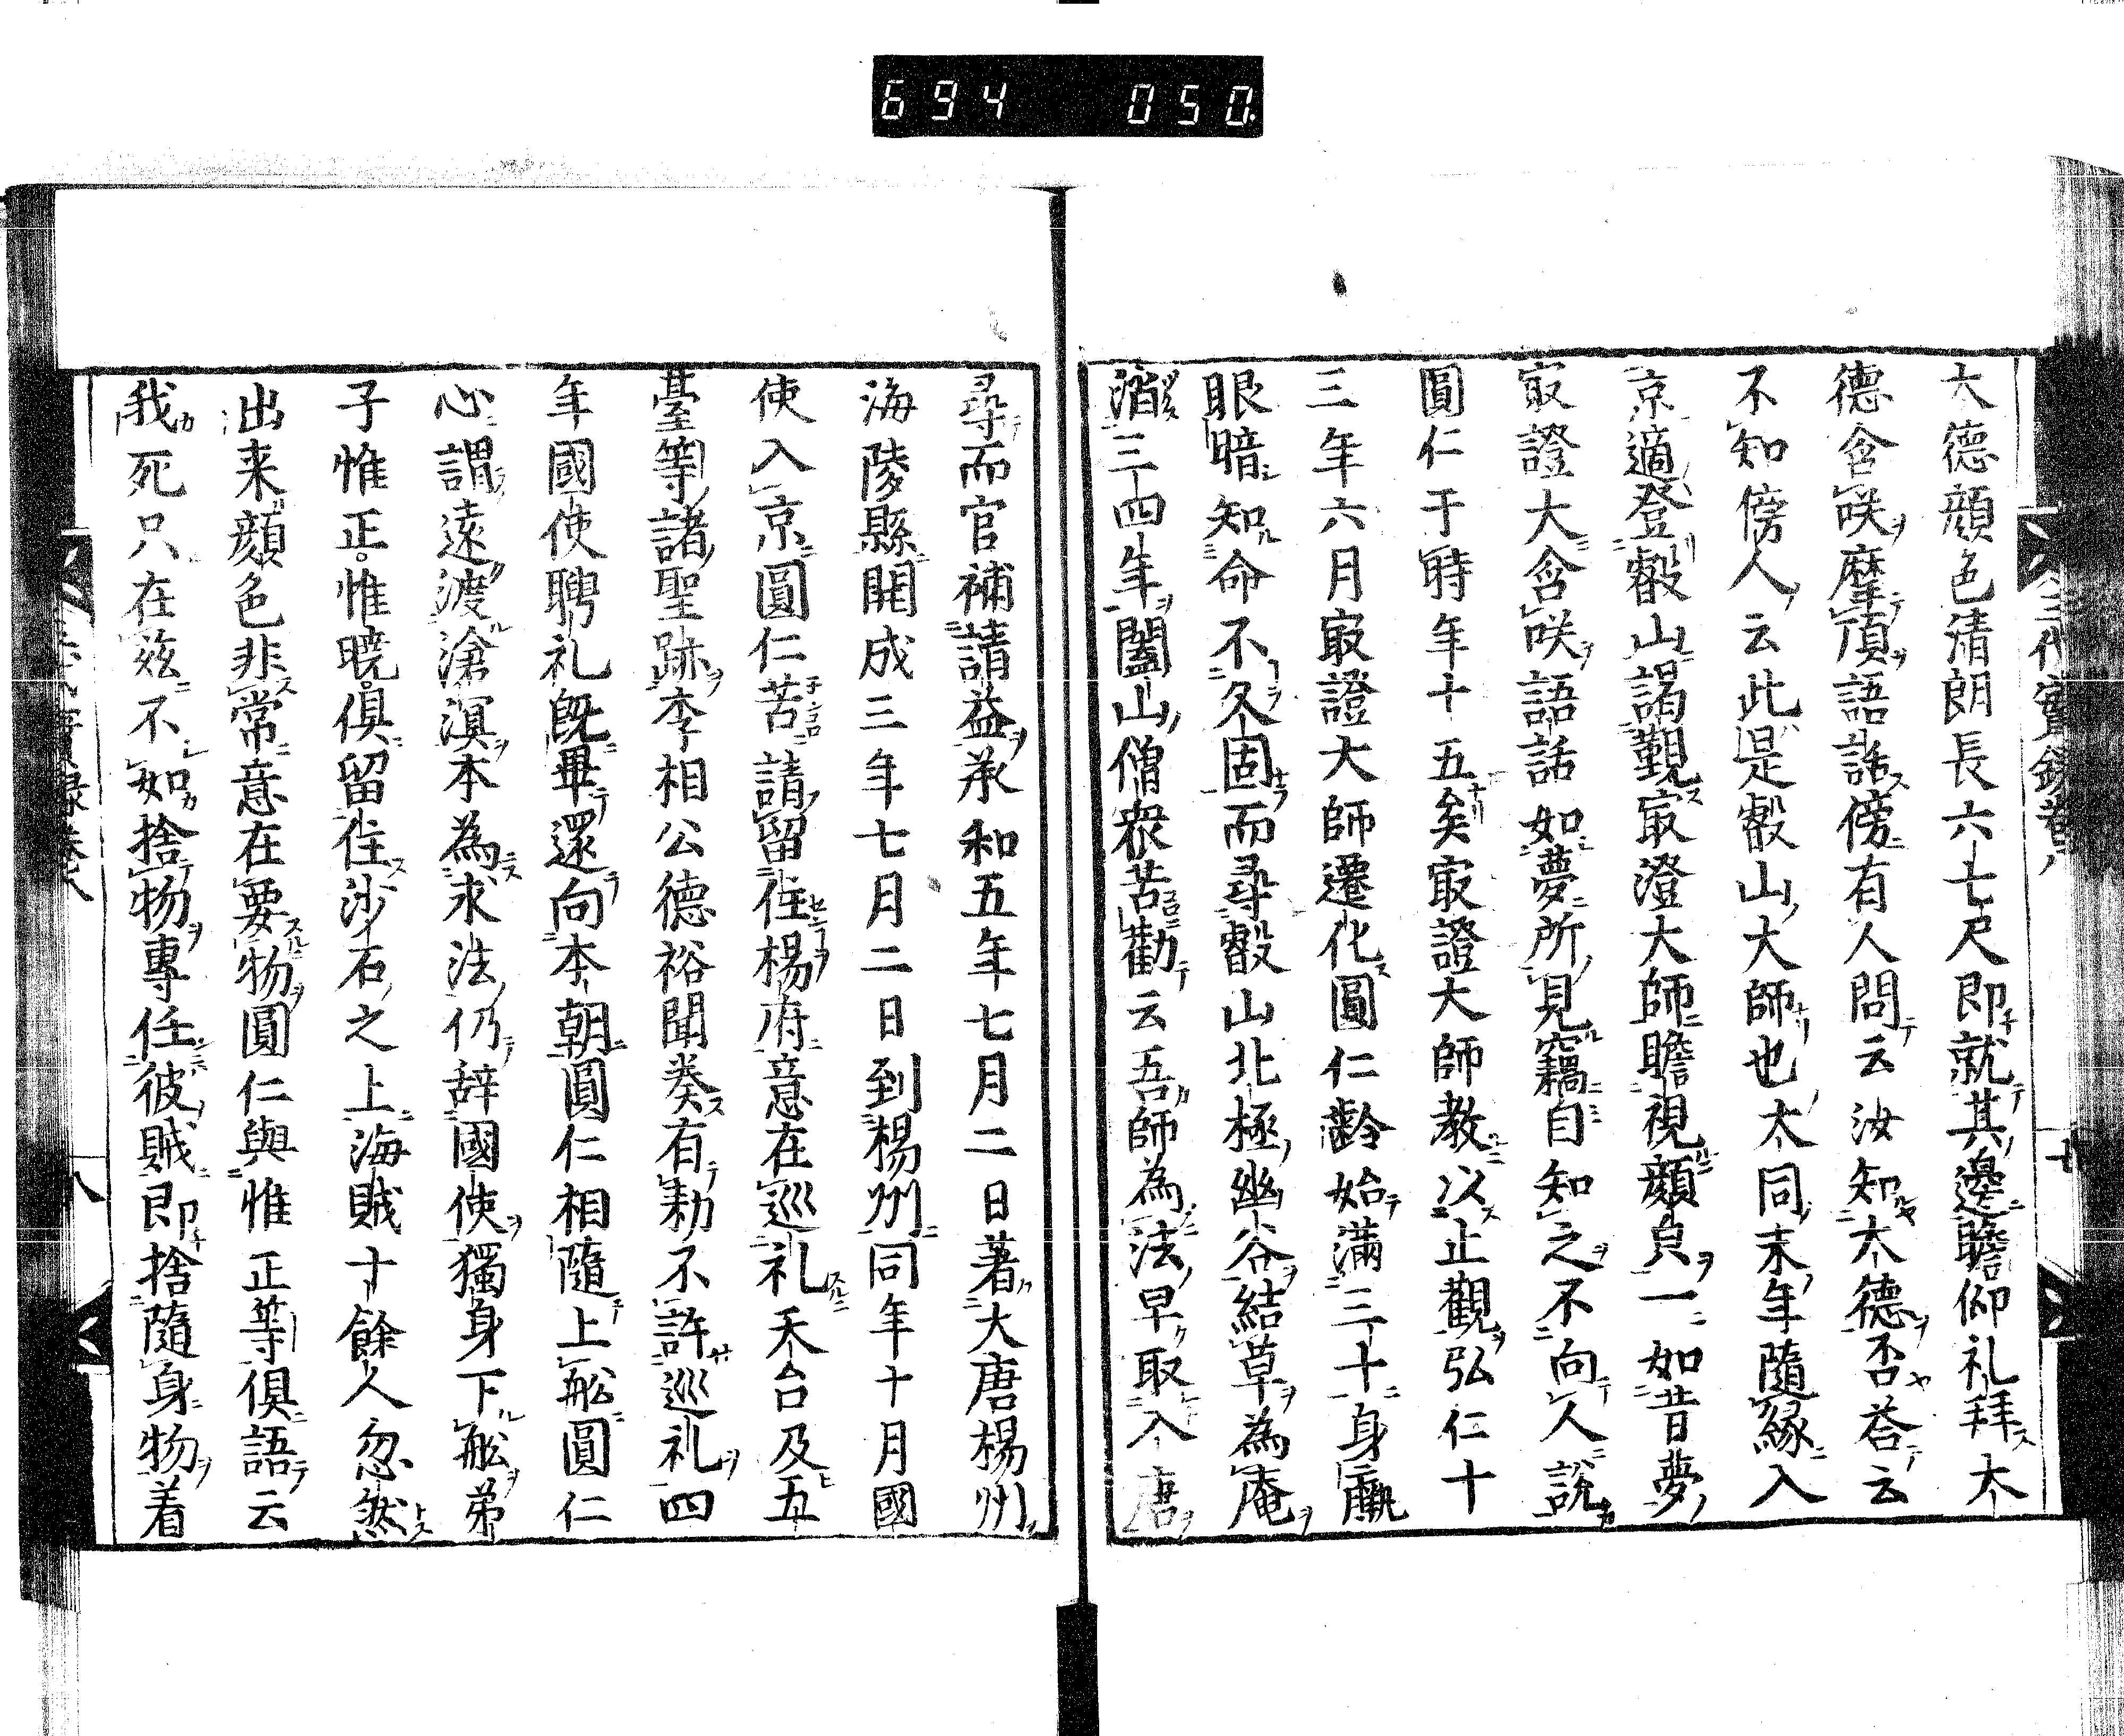 694 050
大德顔色清朗長六七尺即就其邊瞻仰礼拜大
德含咲摩頂語話傍有人問云汝知大德否荅云
不知傍人云此是叡山大師也大同末年隨縁入
京適登叡山謁觀㝡澄大師瞻視顔㒵一如昔夢
㝡證大含咲語話如夢所見竊自知之不向人説
圓仁于時年十五矣㝡證大師教以止觀弘仁十
三年六月㝡證大師遷化圓仁齡始滿三十身羸
眼暗知命不久固而尋叡山北極幽谷結草為庵
三四年闔山僧衆苦勸云吾師為法早取入唐
尋而官補請益承和五年七月二日著大唐楊州
海陵縣開成三年七月二日到楊州同年十月國
使入京圓仁苦請留住楊府意在巡礼天台及五
臺等諸聖跡李相公德裕聞奏有勅不許巡礼四
年國使聘礼既畢還向本朝圓仁相隨上舩圓仁
心謂遠渡滄溟本為求法仍辞國使獨身下舩弟
子惟正惟暁倶留住沙石之上海賊十餘人忽然
出来顔色非常意在要物圓仁與惟正等倶語云
我死只在兹不如捨物專任彼賊即捨隨身物着